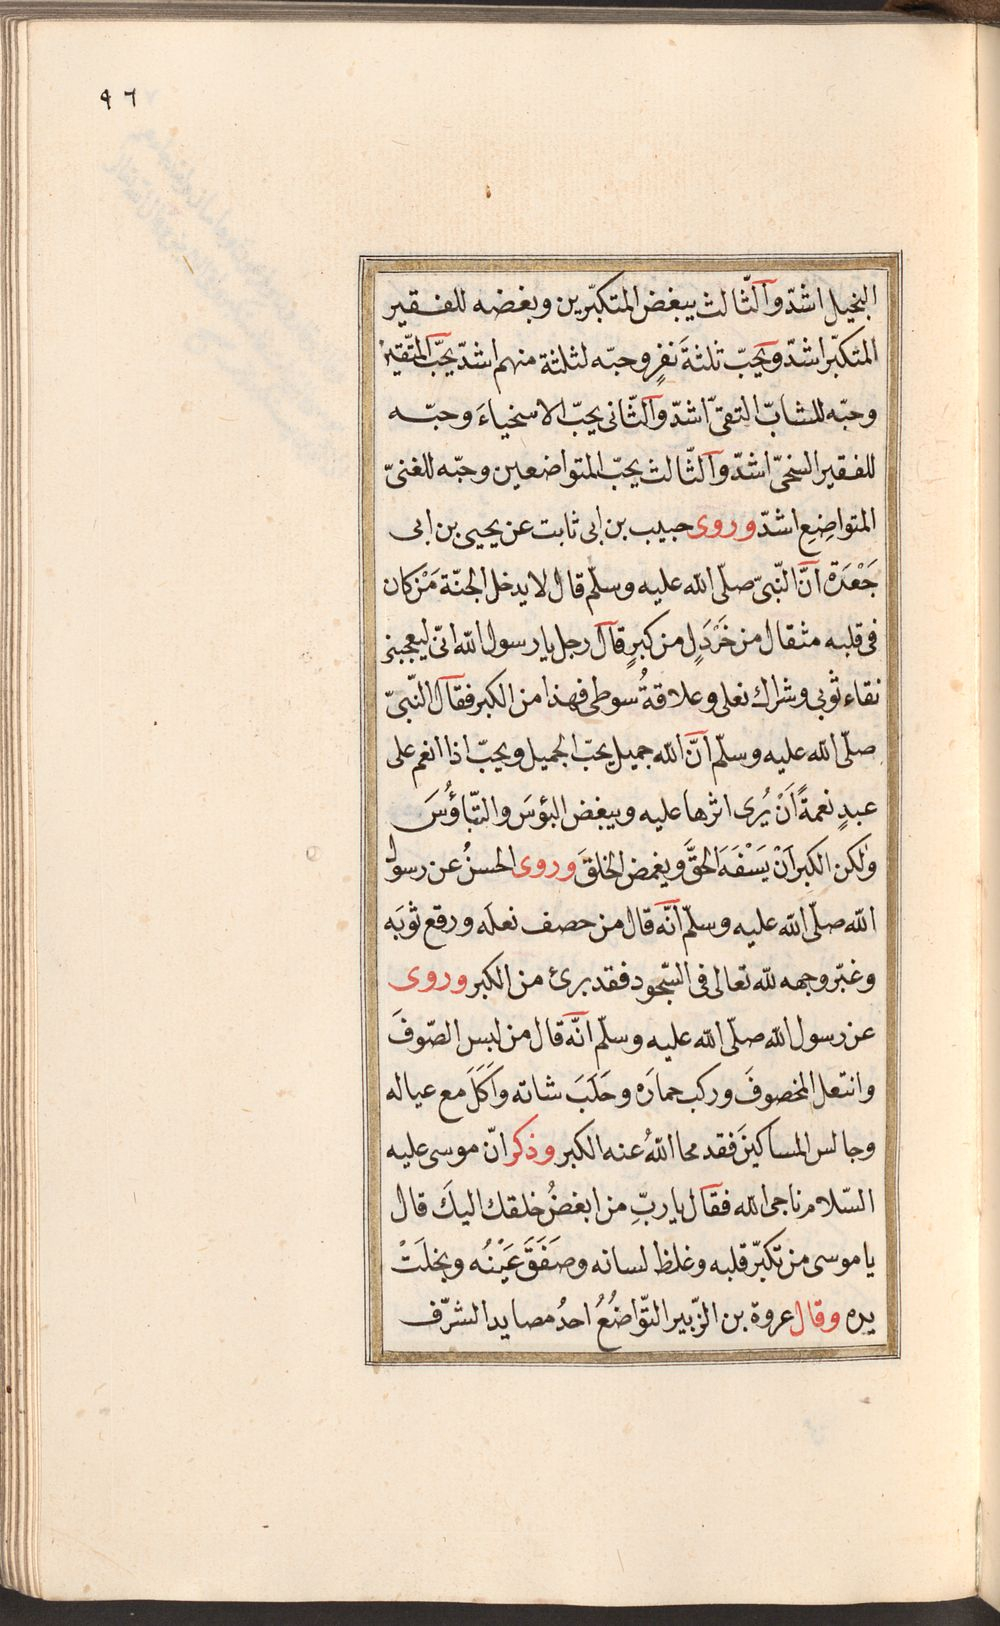 ٩٦
البخيل اشدّ والثّالث يبغض المتكبّرين وبغضه للفقير
المتكبّر اشدّ ويحبّ ثلثةَ نفرٍ وحبّه لثلثة منهم اشدّ يحبّ المتّقين
وحبّه للشابّ التقىّ اشدّ والثّانى يحبّ الاسخياءَ وحبّه
للفقير السخىّ اشدّ والثّالث يحبّ المتواضعين وحبّه للغنىّ
المتواضِعِ اشدّ وروى حبيب بن ابى ثابت عن يحيى بن ابى
جَعْدَة انّ النّبىّ صلّى الله عليه وسلّم قال لا يدخل الجنّة مَنْ كان
فى قلبه مثقال من خَرْدَلٍ من كبرٍ قال رجل يا رسول الله انّى ليعجبنى
نقاء ثوبى وشراك نعلى وعلاقةُ سوطى فهذا من الكبر فقال النّبىّ
صلّى الله عليه وسلّم انّ الله جميل يحبّ الجميل ويحبّ اذا انعم على
عبدٍ نعمةً اَنْ يُرى اثرها عليه ويبغض البؤسَ والتّباؤُسَ
ولكن الكبر اَنْ يَسْفَهَ الحقَّ ويغمض الخلقَ وروى الحسنُ عن رسول
الله صلّى الله عليه وسلّم انّه قال من حصف نعلَه ورقع ثوبَه
وغبّر وجهه لله تعالى فى السّجود فقد برئ من الكبر وروى
عن رسول الله صلّى الله عليه وسلّم انّه قال من لبس الصّوفَ
وانتعل المخصوفَ وركب حمارَه وحَلَبَ شاته وَاَكَلَ مع عياله
وجالس المساكينَ فقد محا اللهُ عنه الكبر وذكر انّ موسى عليه
السّلام ناجى الله فقال يا ربِّ من ابغضُ خلقك اليكَ قال
يا موسى من تكبّر قلبه وغلظ لسانه وصَفَقَ عَيْنُه وبخلَتْ
يده وقال عروة بن الزّبير التّواضُعُ احدُ مصايد الشرّف